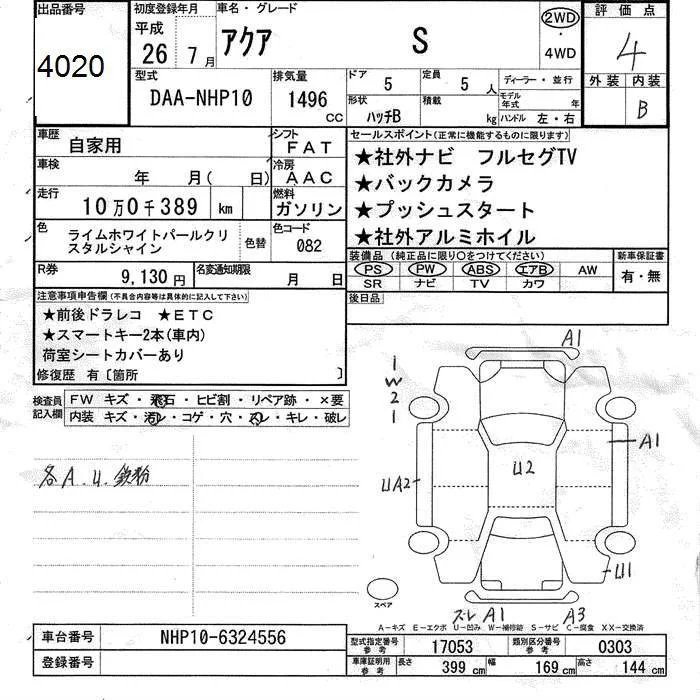 出品番号 初度登録年月 車名・グレード 評価点
4020 平成 26年 7月 アクア S 2WD・4WD 4
型式 排気量 ドア 定員 ディーラー・並行 外装 内装
DAA-NHP10 1496 CC 5 5人 モデル年式 年 B
形状 ハッチB 積載 kg ハンドル 左・右
車歴 自家用 シフト FAT セールスポイント(正常に機能するものに限ります)
車検 年 月( 日) 冷房 AAC ★社外ナビ フルセグTV
走行 10万0千389 km 燃料 ガソリン ★バックカメラ
★プッシュスタート
★社外アルミホイル
色 ライムホワイトパールクリスタルシャイン 色替 色コード 082
装備品(純正品に限り○をつけてください) 新車保証書
PS PW ABS エアB AW 有・無
SR ナビ TV カワ
R券 9,130円 名変通知期限 月 日
後日品
注意事項申告欄(不具合内容等は具体的に記入して下さい)
★前後ドラレコ ★ETC
★スマートキー2本(車内)
荷室シートカバーあり
修復歴 有〔箇所 〕
検査員記入欄 FW キズ・飛石・ヒビ割・リペア跡・×要
内装 キズ・汚レ・コゲ・穴・スレ・キレ・破レ
各A.U.鉄粉
A1
A1
U2
UA2
U1
ズレ A1 A3
スペア
A-キズ E-エクボ U-凹み W-補修跡 S-サビ C-腐食 XX-交換済
車台番号 NHP10-6324556
登録番号
型式指定番号 参考 17053 類別区分番号 参考 0303
車庫証明用 参考 長さ 399 cm 幅 169 cm 高さ 144 cm